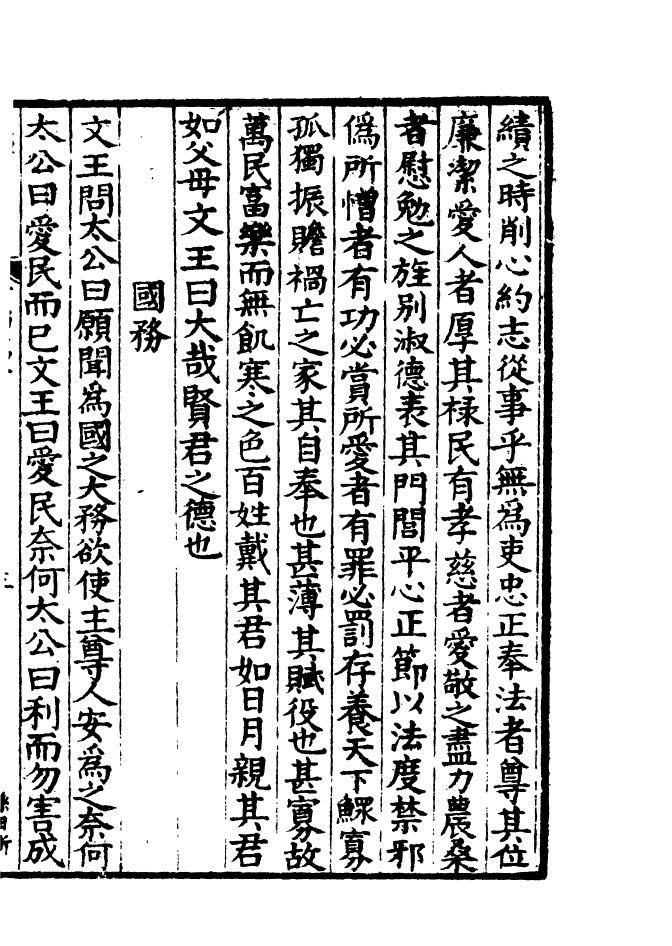 績之時削心約志從事乎無爲吏忠正奉法者尊其位
廉潔愛人者厚其祿民有孝慈者愛敬之盡力農桑
者慰勉之旌別淑德表其門閭平心正節以法度禁邪
僞所憎者有功必賞所愛者有罪必罰存養天下鰥寡
孤獨振贍禍亡之家其自奉也甚薄其賦役也甚寡故
萬民富樂而無飢寒之色百姓戴其君如日月親其君
如父母文王曰大哉賢君之德也
國務
文王問太公曰願聞爲國之大務欲使主尊人安爲之奈何
太公曰愛民而已文王曰愛民奈何太公曰利而勿害成
三